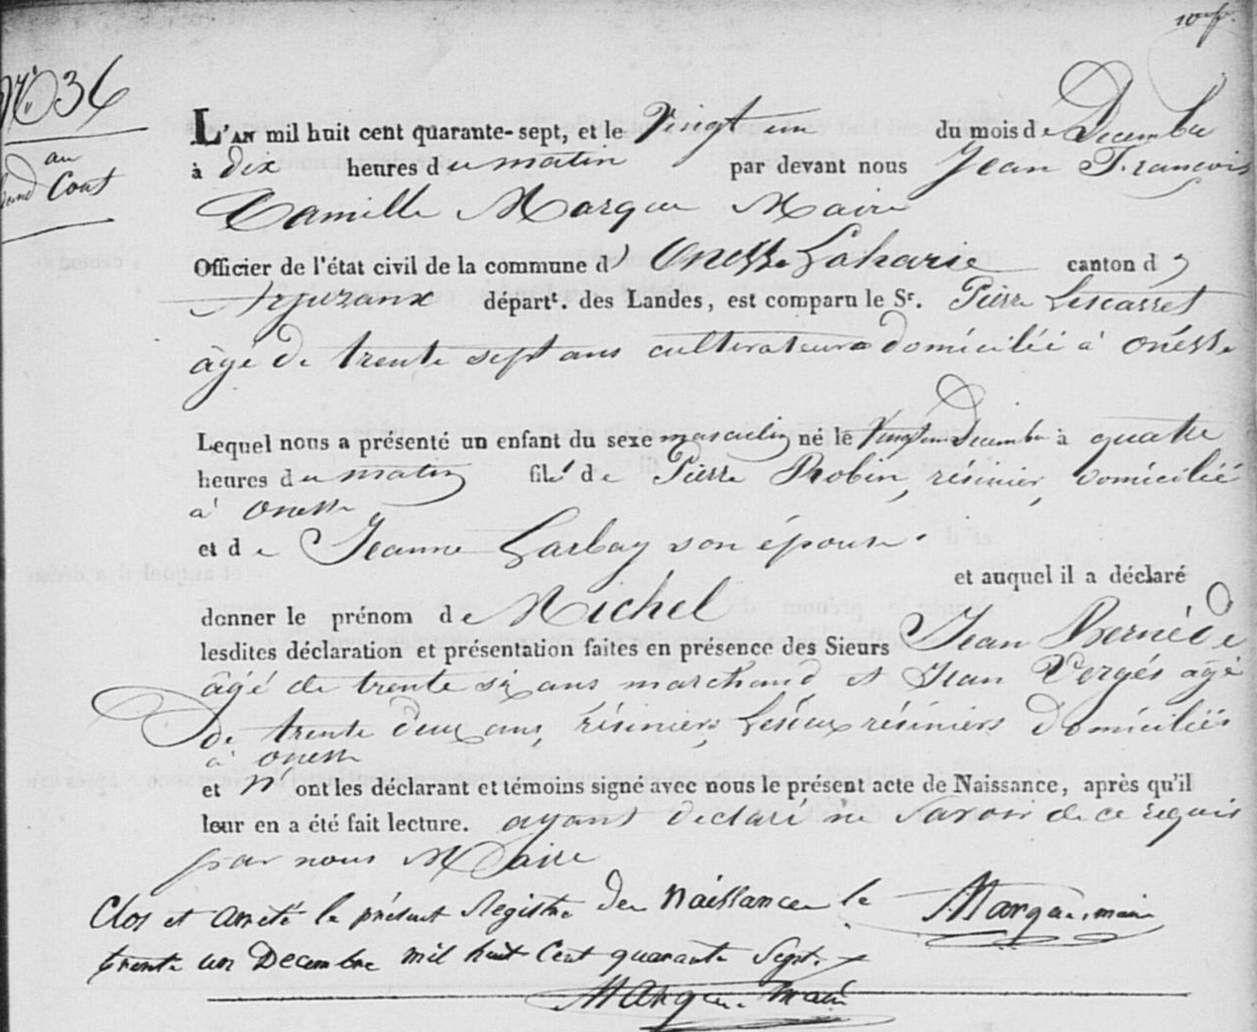 N° 36
au
Cout
L'AN mil huit cent quarante-sept, et le Vingt un du mois de Decembre
à dix heures du matin par devant nous Jean François
Camille Marque Maire
Officier de l'état civil de la commune d' Onesse Laharie canton d'
Arjuzanx départt. des Landes, est comparu le Sr. Pierre Lescarret
âgé de trente sept ans cultivateur domicilié à onesse
Lequel nous a présenté un enfant du sexe masculin né le Vingt un Decembre à quatre
heures du matin fils de Pierre Robin, résinier, domicilié
à onesse
et de Jeanne Larbay son épouse.
et auquel il a déclaré
donner le prénom de Michel
lesdites déclaration et présentation faites en présence des Sieurs Jean Bernède
âgé de trente six ans marchand et Jean Vergés âgé
de trente deux ans, résinier, résiniers domiciliés
à onesse
et n' ont les déclarant et témoins signé avec nous le présent acte de Naissance, après qu'il
leur en a été fait lecture. ayant declaré ne savoir de ce requis
par nous Maire
Clos et arreté le présent Registre de Naissance le Marque, maire
trente un Decembre mil huit Cent quarante Sept.
Marque. maire